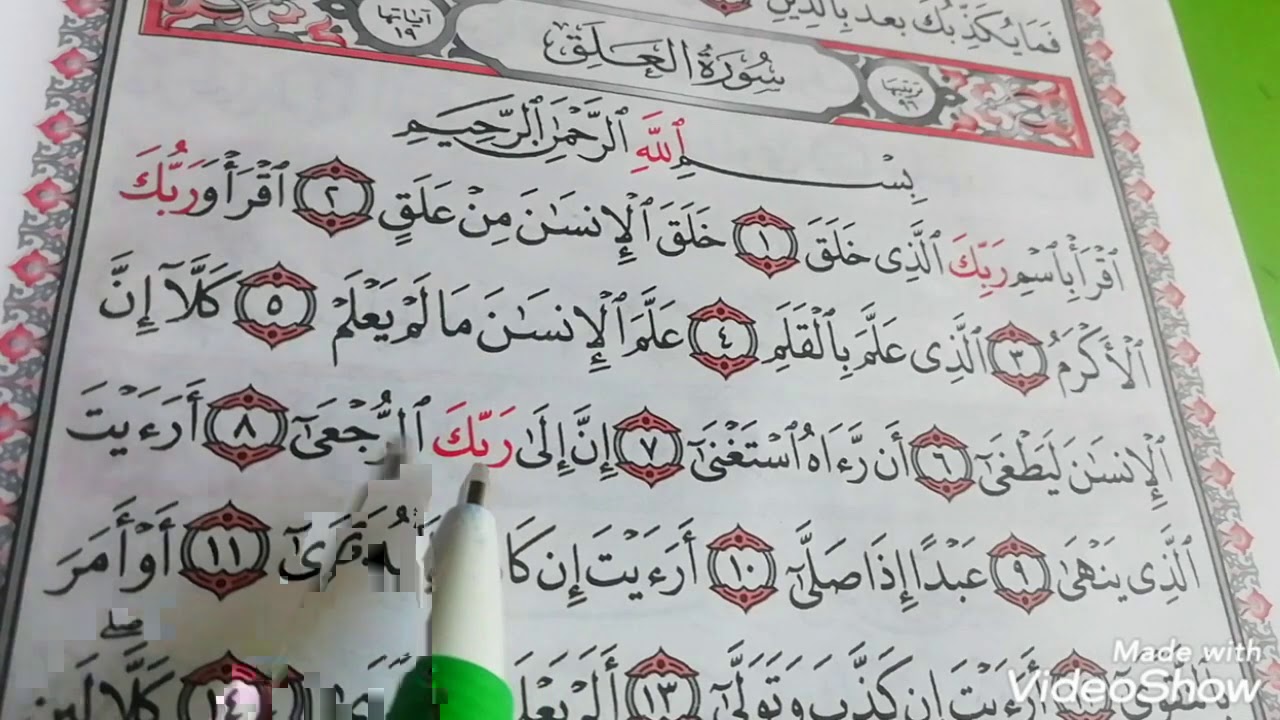 فَمَا يُكَذِّبُكَ بَعْدُ بِالدِّينِ
سُورَةُ الْعَلَقِ
آيَاتُهَا ١٩
بِسْمِ ٱللَّهِ ٱلرَّحْمَٰنِ ٱلرَّحِيمِ
ٱقْرَأْ بِٱسْمِ رَبِّكَ ٱلَّذِى خَلَقَ ١ خَلَقَ ٱلْإِنسَٰنَ مِنْ عَلَقٍ ٢ ٱقْرَأْ وَرَبُّكَ
ٱلْأَكْرَمُ ٣ ٱلَّذِى عَلَّمَ بِٱلْقَلَمِ ٤ عَلَّمَ ٱلْإِنسَٰنَ مَا لَمْ يَعْلَمْ ٥ كَلَّآ إِنَّ
ٱلْإِنسَٰنَ لَيَطْغَىٰٓ ٦ أَن رَّءَاهُ ٱسْتَغْنَىٰٓ ٧ إِنَّ إِلَىٰ رَبِّكَ ٱلرُّجْعَىٰٓ ٨ أَرَءَيْتَ
ٱلَّذِى يَنْهَىٰ ٩ عَبْدًا إِذَا صَلَّىٰٓ ١٠ أَرَءَيْتَ إِن ١١ أَوْ أَمَرَ
بِٱلتَّقْوَىٰٓ أَرَءَيْتَ إِن كَذَّبَ وَتَوَلَّىٰٓ ١٣ أَلَمْ ١٤ كَلَّا لَئِن
Made with
VideoShow